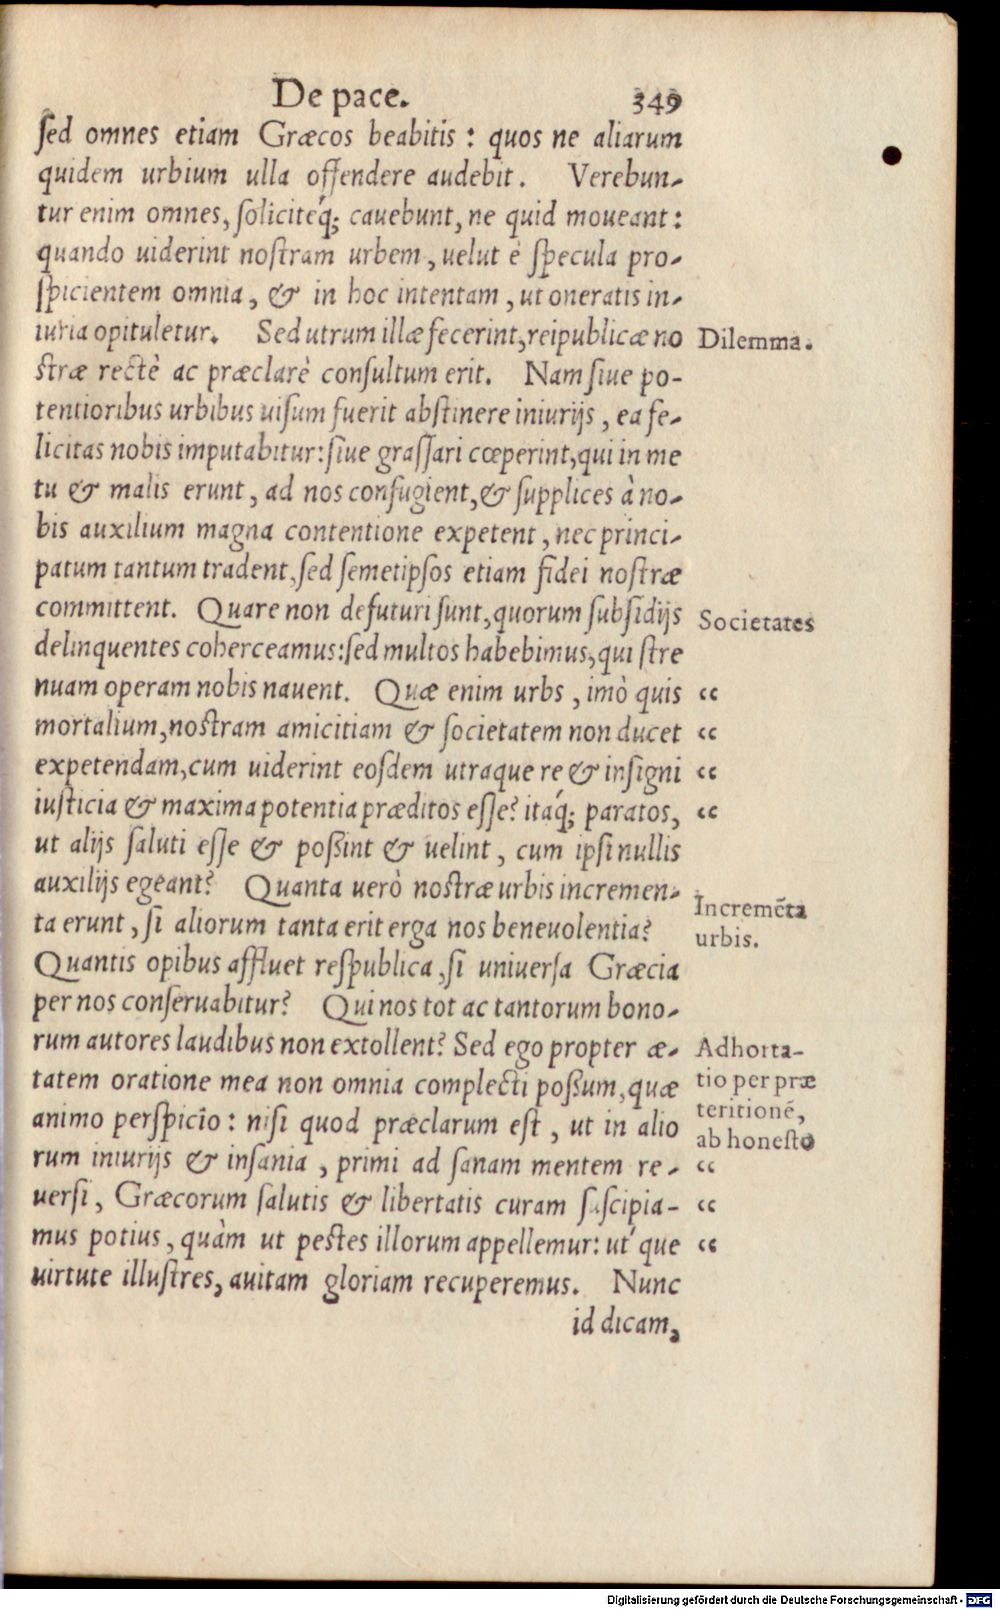 De pace. 349
ſed omnes etiam Græcos beabitis: quos ne aliarum
quidem urbium ulla offendere audebit. Verebun-
tur enim omnes, ſoliciteq́; cauebunt, ne quid moueant:
quando uiderint noſtram urbem, uelut è ſpecula pro-
ſpicientem omnia, & in hoc intentam, ut oneratis in-
iuria opituletur. Sed utrum illæ fecerint, reipublicæ no
ſtræ rectè ac præclarè conſultum erit. Nam ſiue po-
tentioribus urbibus uiſum fuerit abſtinere iniurijs, ea fe-
licitas nobis imputabitur: ſiue graſſari cœperint, qui in me
tu & malis erunt, ad nos confugient, & ſupplices à no-
bis auxilium magna contentione expetent, nec princi-
patum tantum tradent, ſed ſemetipſos etiam fidei noſtræ
committent. Quare non defuturi ſunt, quorum ſubſidijs
delinquentes coherceamus: ſed multos habebimus, qui ſtre
nuam operam nobis nauent. Quæ enim urbs, imò quis
mortalium, noſtram amicitiam & ſocietatem non ducet
expetendam, cum uiderint eoſdem utraque re & inſigni
iuſticia & maxima potentia præditos eſſe? itaq́; paratos,
ut alijs ſaluti eſſe & poßint & uelint, cum ipſi nullis
auxilijs egeant? Quanta uerò noſtræ urbis incremen-
ta erunt, ſi aliorum tanta erit erga nos beneuolentia?
Quantis opibus affluet reſpublica, ſi uniuerſa Græcia
per nos conſeruabitur? Qui nos tot ac tantorum bono-
rum autores laudibus non extollent? Sed ego propter æ-
tatem oratione mea non omnia complecti poßum, quæ
animo perſpicio: niſi quod præclarum eſt, ut in alio
rum iniurijs & inſania, primi ad ſanam mentem re-
uerſi, Græcorum ſalutis & libertatis curam ſuſcipia-
mus potius, quàm ut peſtes illorum appellemur: ut́que
uirtute illuſtres, auitam gloriam recuperemus. Nunc
id dicam,
Dilemma.
Societates
“
“
“
“
Incremẽta
urbis.
Adhorta-
tio per præ
teritionẽ,
ab honeſto
“
“
“
Digitalisierung gefördert durch die Deutsche Forschungsgemeinschaft - DFG